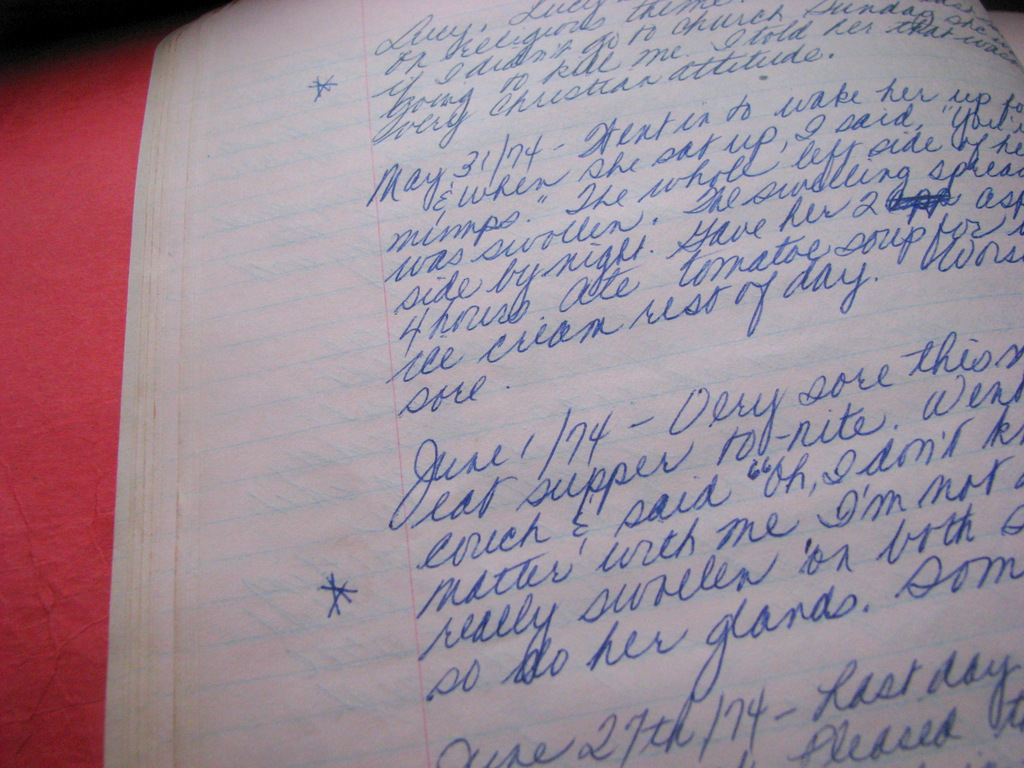 Lucy, Lucy
on religious theme.
if I didn't go to church Sunday she
going to kill me. I told her that was
very Christian attitude.
May 31/74 - Went in to wake her up
& when she sat up, I said, "You
mumps." The whole left side of he
was swollen. The swelling sprea
side by night. Gave her 2 asp
4 hours. Ate tomatoe soup for
ice cream rest of day. Wors
sore.
June 1/74 - Very sore this m
eat supper to-nite. Went
couch & said "Oh, I don't kn
matter with me I'm not
really swollen on both s
so do her glands. Som
June 27th/74 - Last day
Pleased t